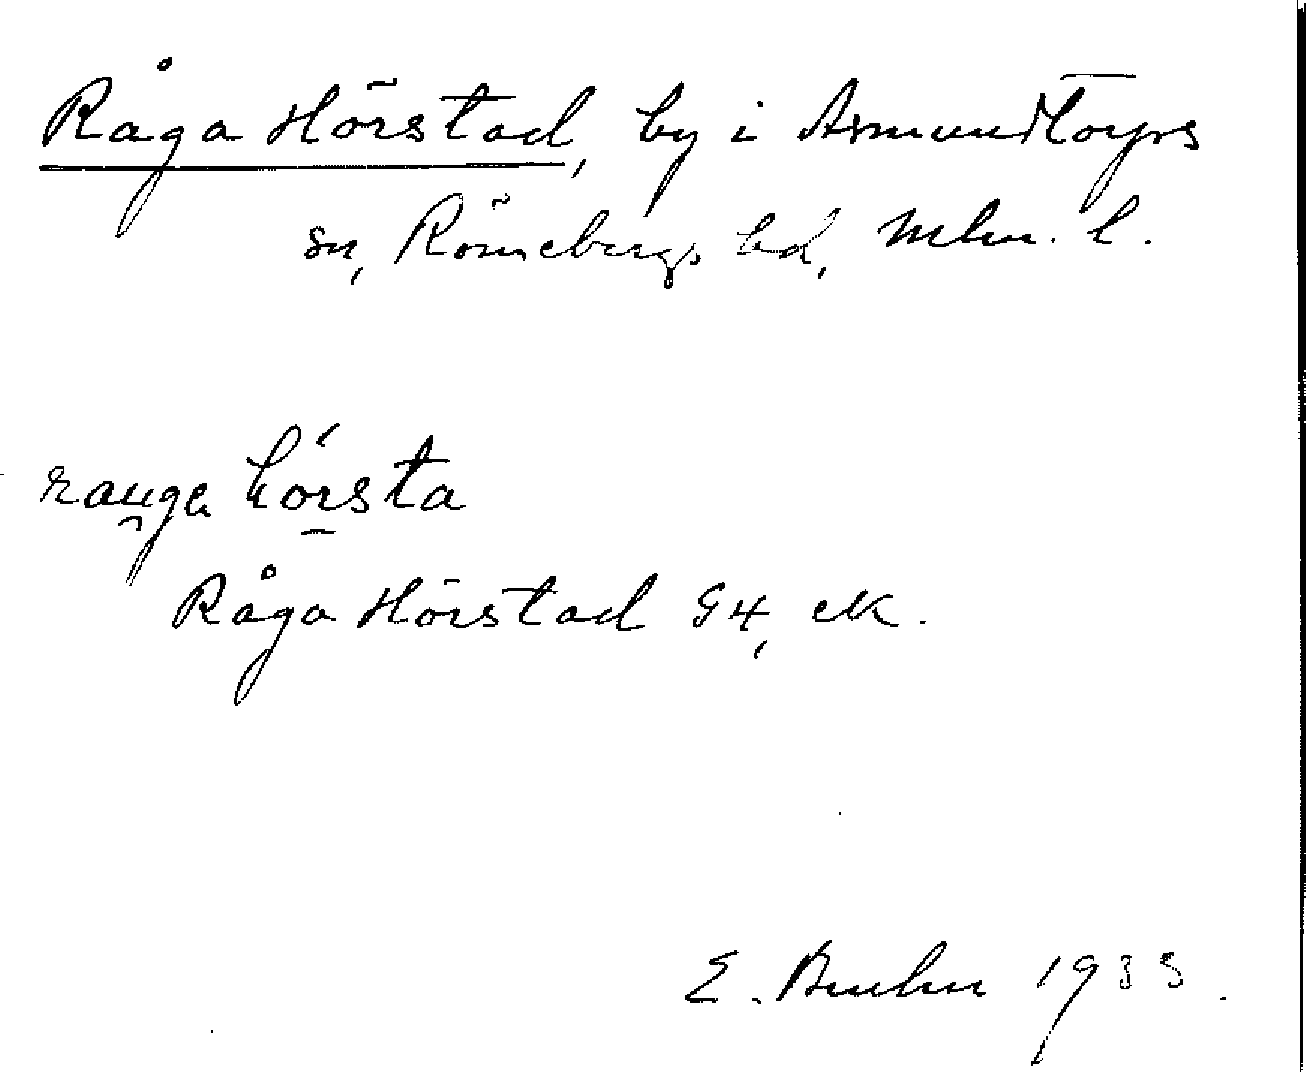 Råga Hörstad, by i Asmundtorps
sn, Rönnebergs hd, Mlm. l.
rauga hörsta
Råga Hörstad G4, ek.
E. Bruhn 1933.